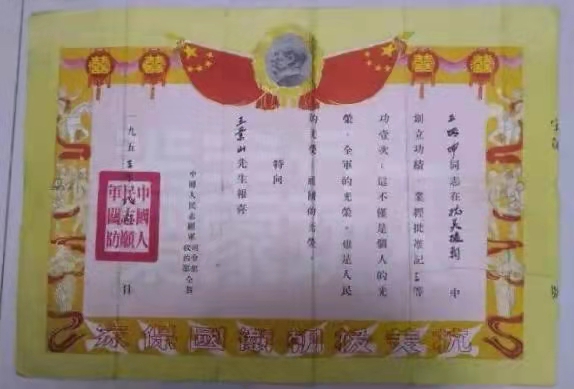 同志在抗美援朝中
創立功績，業經批准記三等
功壹次，這不僅是個人的光
榮，全軍的光榮，也是人民
的光榮，祖國的光榮。
特向
王業山先生報喜
中國人民志願軍
一九五三年 月 日
中國人民志願軍國防
抗美援朝衛國保家